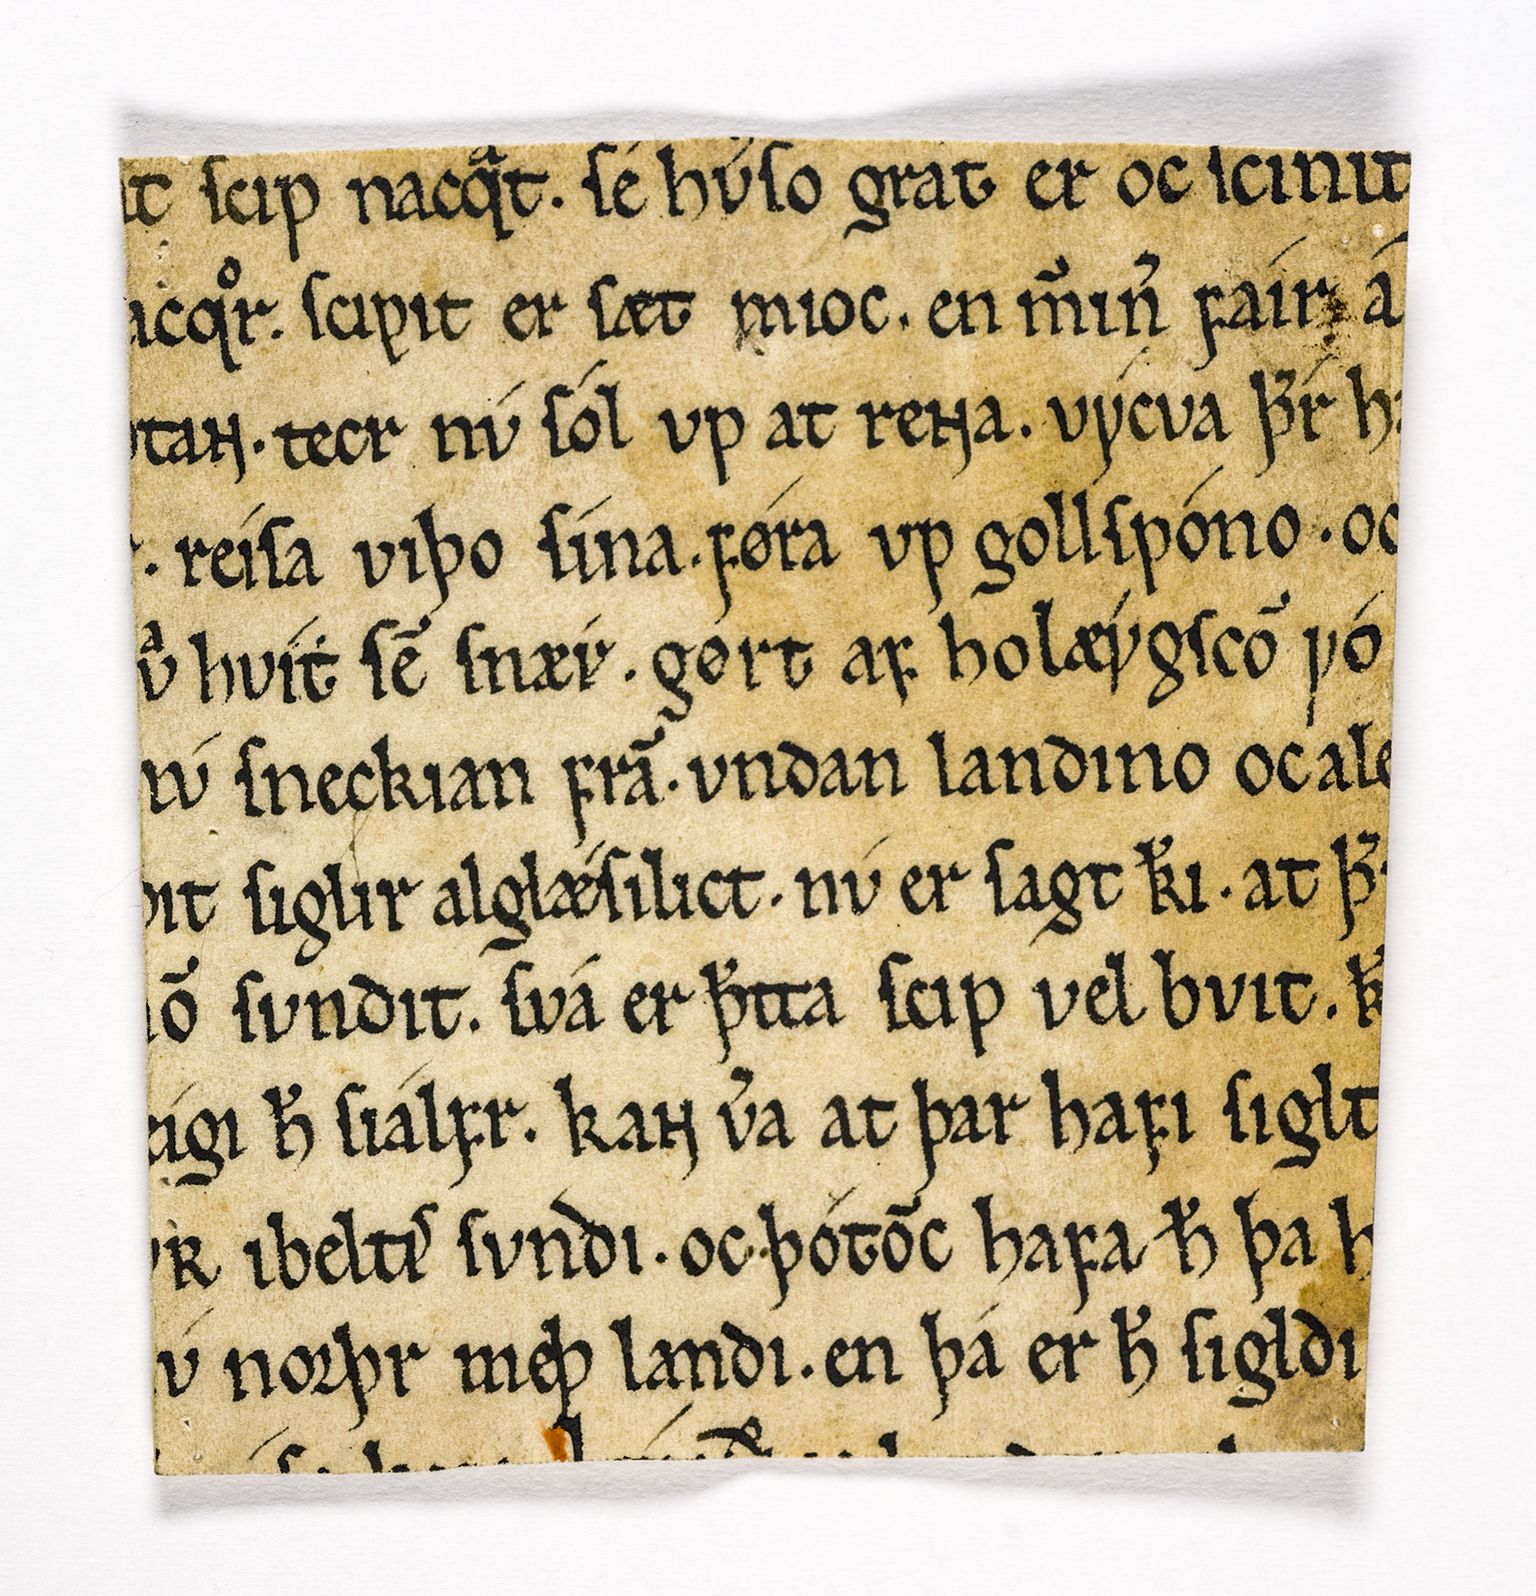 scip nacqͣt. sé hv́so grat er oc scinit
acqͦr. scipit er sæt mioc. en m̄in̄ fáir
tаɴ. tecr nv́ sól vp at reɴa. vycva þ̄r
. reisa viþo sína. føra vp gollspóno. oc
hvítt sē snær. gørt af holæýgscō
nv́ sneckian frā. vndan landino oc
it siglir alglǽsilict. nv́ er sagt k̄i. at
sundit. svá er þ̄tta scip vel bvit.
eigi h̄ siálfr. kaɴ v̄a at þar hafi siglt
ibeltiſ svndi. oc þótōc hafa h̄ þa
norþr meþ landi. en þá er h̄ sigldi